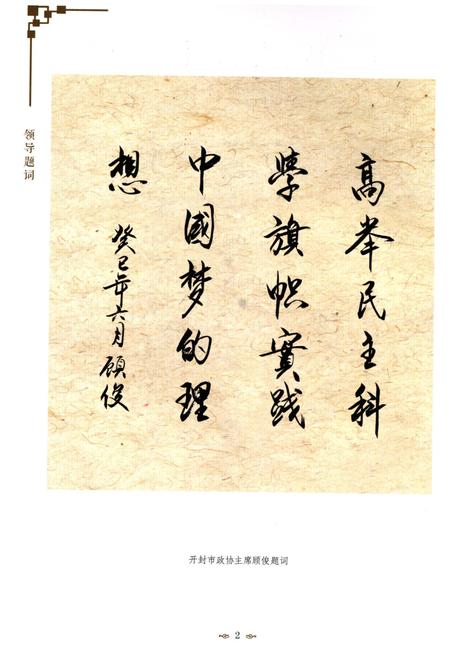 领导题词
高举民主科
學旗帜實践
中國梦的理
想
癸巳年六月顾俊
开封市政协主席顾俊题词
2